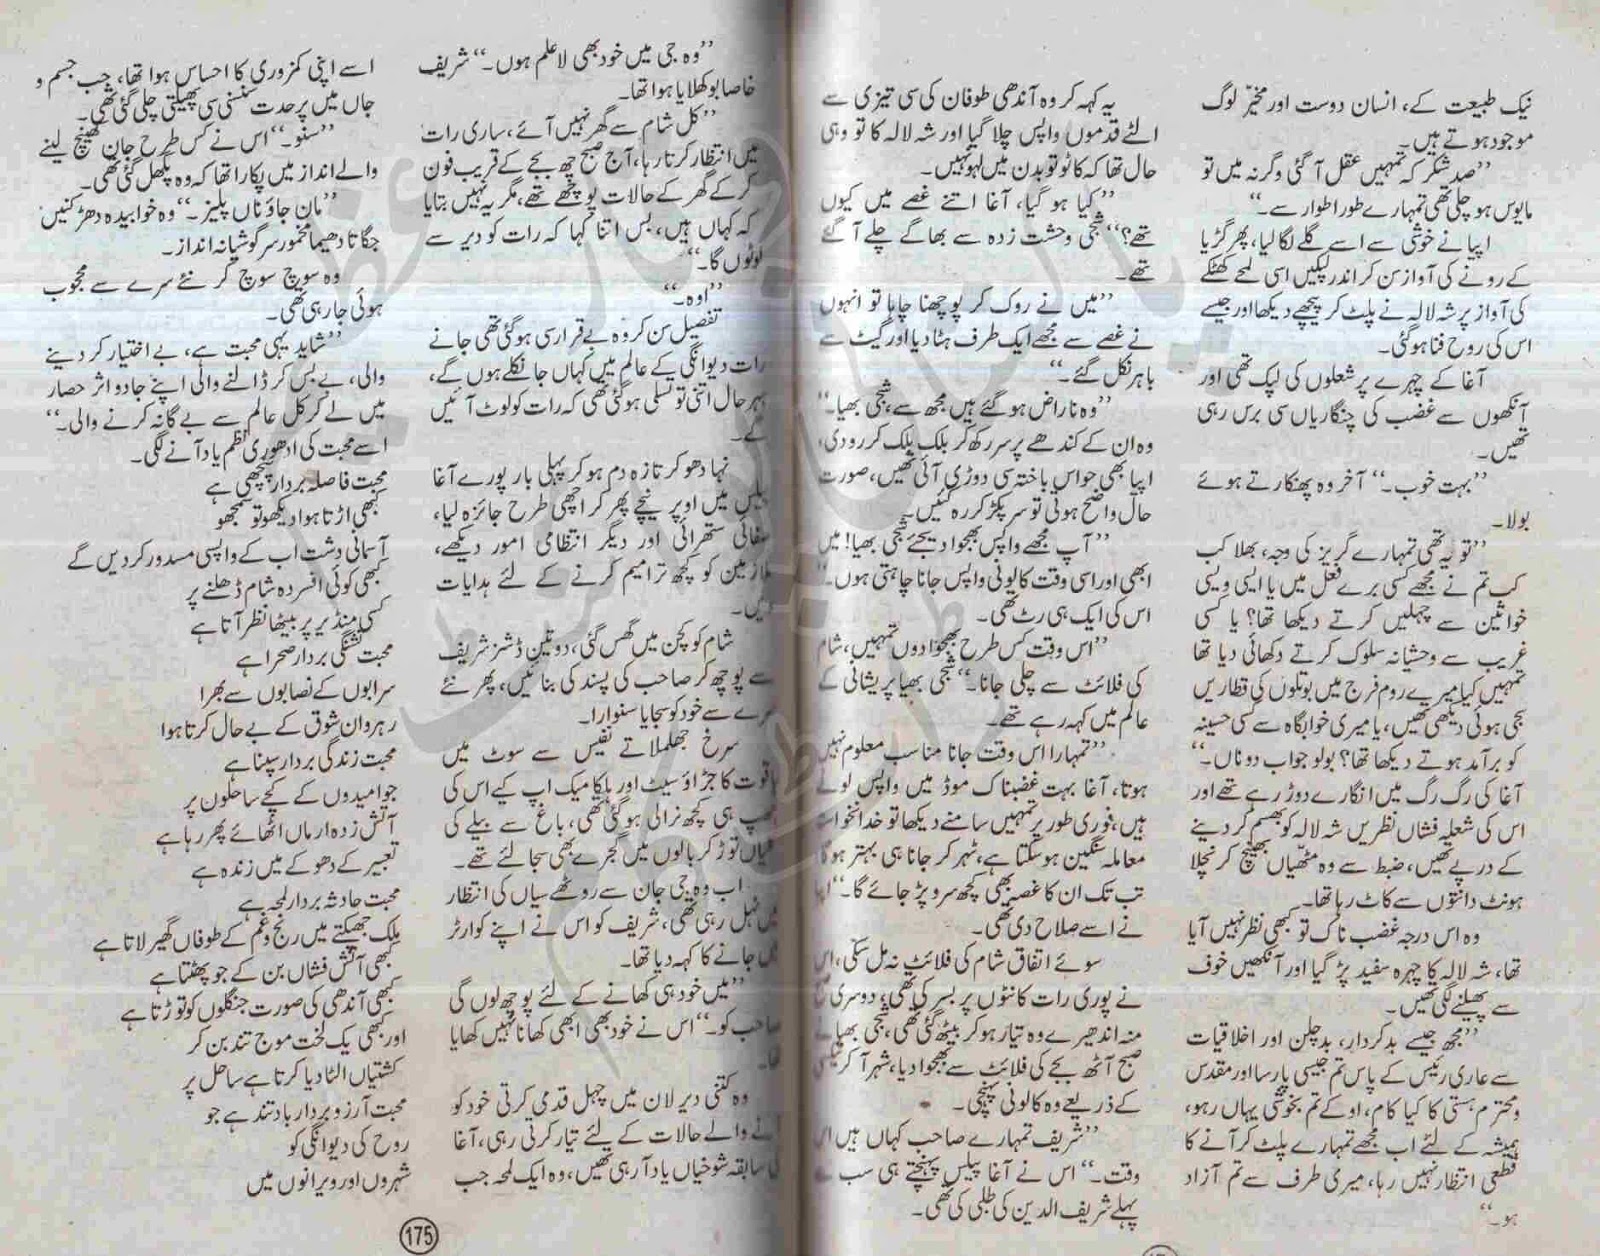 نیک طبیعت کے، انسان دوست اور مخیر لوگ
موجود ہوتے ہیں۔
”صد شکر کہ تمہیں عقل آ گئی وگرنہ میں تو
مایوس ہو چلی تھی تمہارے طور اطوار سے۔“
اپیا نے خوشی سے اسے گلے لگا لیا، پھر گڑیا
کے رونے کی آواز سن کر اندر لپکیں اسی لمحے کھٹکے
کی آواز پر شہ لالہ نے پلٹ کر پیچھے دیکھا اور جیسے
اس کی روح فنا ہو گئی۔
آغا کے چہرے پر شعلوں کی لپک تھی اور
آنکھوں سے غضب کی چنگاریاں سی برس رہی
تھیں۔
”بہت خوب۔“ آخر وہ پھنکارتے ہوئے
بولا۔
”تو یہ تھی تمہارے گریز کی وجہ، بھلا کب
کب تم نے مجھے کسی برے فعل میں یا ایسی ویسی
خواتین سے چہلیں کرتے دیکھا تھا؟ یا کسی
غریب سے وحشیانہ سلوک کرتے دکھائی دیا تھا
تمہیں کیا میرے روم فرج میں بوتلوں کی قطاریں
سجی ہوئی دیکھی تھیں، یا میری خوابگاہ سے کسی حسینہ
کو برآمد ہوتے دیکھا تھا؟ بولو جواب دو ناں۔“
آغا کی رگ رگ میں انگارے دوڑ رہے تھے اور
اس کی شعلہ فشاں نظریں شہ لالہ کو بھسم کر دینے
کے درپے تھیں، ضبط سے وہ مٹھیاں بھینچ کر نچلا
ہونٹ دانتوں سے کاٹ رہا تھا۔
وہ اس درجہ غضب ناک تو کبھی نظر نہیں آیا
تھا، شہ لالہ کا چہرہ سفید پڑ گیا اور آنکھیں خوف
سے پھیلنے لگی تھیں۔
”مجھ جیسے بدکردار، بدچلن اور اخلاقیات
سے عاری رئیس کے پاس تم جیسی پارسا اور مقدس
و محترم ہستی کا کیا کام، او کے تم بخوشی یہاں رہو،
ہمیشہ کے لئے اب مجھے تمہارے پلٹ کر آنے کا
قطعی انتظار نہیں رہا، میری طرف سے تم آزاد
ہو۔“
یہ کہہ کر وہ آندھی طوفان کی سی تیزی سے
الٹے قدموں واپس چلا گیا اور شہ لالہ کا تو وہی
حال تھا کہ کاٹو تو بدن میں لہو نہیں۔
”کیا ہو گیا، آغا اتنے غصے میں کیوں
تھے؟“ شجی وحشت زدہ سے بھاگے چلے آ گئے
تھے۔
”میں نے روک کر پوچھنا چاہا تو انہوں
نے غصے سے مجھے ایک طرف ہٹا دیا اور گیٹ سے
باہر نکل گئے۔“
”وہ ناراض ہو گئے ہیں مجھ سے، شجی بھیا۔“
وہ ان کے کندھے پر سر رکھ کر بلک بلک کر رو دی،
اپیا بھی حواس باختہ سی دوڑی آئی تھیں، صورت
حال واضح ہوئی تو سر پکڑ کر رہ گئیں۔
”آپ مجھے واپس بھجوا دیجئے شجی بھیا! میں
ابھی اور اسی وقت کالونی واپس جانا چاہتی ہوں۔“
اس کی ایک ہی رٹ تھی۔
”اس وقت کس طرح بھجوا دوں تمہیں، شام
کی فلائٹ سے چلی جانا۔“ شجی بھیا پریشانی کے
عالم میں کہہ رہے تھے۔
”تمہارا اس وقت جانا مناسب معلوم نہیں
ہوتا، آغا بہت غضبناک موڈ میں واپس لوٹے
ہیں، فوری طور پر تمہیں سامنے دیکھا تو خدانخواستہ
معاملہ سنگین ہو سکتا ہے، ٹھہر کر جانا ہی بہتر ہو گا
تب تک ان کا غصہ بھی کچھ سرد پڑ جائے گا۔“ اپیا
نے اسے صلاح دی تھی۔
سوئے اتفاق شام کی فلائٹ نہ مل سکی، اس
نے پوری رات کانٹوں پر بسر کی تھی، دوسری
منہ اندھیرے وہ تیار ہو کر بیٹھ گئی تھی، شجی بھیا نے
صبح آٹھ بجے کی فلائٹ سے بھجوا دیا، شہر آ کر ٹیکسی
کے ذریعے وہ کالونی پہنچی۔
”شریف تمہارے صاحب کہاں ہیں اس
وقت۔“ اس نے آغا پیلس پہنچتے ہی سب سے
پہلے شریف الدین کی طلبی کی تھی۔
”وہ جی میں خود بھی لاعلم ہوں۔“ شریف
خاصا بوکھلایا ہوا تھا۔
”کل شام سے گھر نہیں آئے، ساری رات
میں انتظار کرتا رہا، آج صبح چھ بجے کے قریب فون
کر کے گھر کے حالات پوچھے تھے، مگر یہ نہیں بتایا
کہ کہاں ہیں، بس اتنا کہا کہ رات کو دیر سے
لوٹوں گا۔“
”اوہ۔“
تفصیل سن کر وہ بے قرار سی ہو گئی تھی جانے
رات دیوانگی کے عالم میں کہاں جا نکلے ہوں گے،
بہر حال اتنی تو تسلی ہو گئی تھی کہ رات کو لوٹ آئیں
گے۔
نہا دھو کر تازہ دم ہو کر پہلی بار پورے آغا
پیلس میں اوپر نیچے پھر کر اچھی طرح جائزہ لیا،
صفائی ستھرائی اور دیگر انتظامی امور دیکھے،
ملازمین کو کچھ ترامیم کرنے کے لئے ہدایات
دیں۔
شام کو کچن میں گھس گئی، دو تین ڈشز شریف
سے پوچھ کر صاحب کی پسند کی بنائیں، پھر نئے
سرے سے خود کو سجایا سنوارا۔
سرخ جھلملاتے نفیس سے سوٹ میں
یاقوت کا جڑاؤ سیٹ اور ہلکا میک اپ کیے اس کی
چھب ہی کچھ نرالی ہو گئی تھی، باغ سے بیلے کی
کلیاں توڑ کر بالوں میں گجرے بھی سجا لئے تھے۔
اب وہ جی جان سے روٹھے سیاں کی انتظار
میں ٹہل رہی تھی، شریف کو اس نے اپنے کوارٹر
میں جانے کا کہہ دیا تھا۔
”میں خود ہی کھانے کے لئے پوچھ لوں گی
صاحب کو۔“ اس نے خود بھی ابھی کھانا نہیں کھایا
تھا۔
وہ کتنی دیر لان میں چہل قدمی کرتی خود کو
آنے والے حالات کے لئے تیار کرتی رہی، آغا
کی سابقہ شوخیاں یاد آ رہی تھیں، وہ ایک لمحہ جب
اسے اپنی کمزوری کا احساس ہوا تھا، جب جسم و
جاں میں پر حدت سنسنی سی پھیلتی چلی گئی تھی۔
”سنو۔“ اس نے کس طرح جان کھینچ لینے
والے انداز میں پکارا تھا کہ وہ پگھل گئی تھی۔
”مان جاؤ ناں پلیز۔“ وہ خوابیدہ دھڑکنیں
جگاتا دھیما مخمور سرگوشیانہ انداز۔
وہ سوچ سوچ کر نئے سرے سے محجوب
ہوئی جا رہی تھی۔
”شاید یہی محبت ہے، بے اختیار کر دینے
والی، بے بس کر ڈالنے والی اپنے جادو اثر حصار
میں لے کر کل عالم سے بے گانہ کرنے والی۔“
اسے محبت کی ادھوری نظم یاد آنے لگی۔
محبت فاصلہ بردار پنچھی ہے
کبھی اڑتا ہوا دیکھو تو سمجھو
آسمانی دشت اب کے واپسی مسدور کر دیں گے
کبھی کوئی افسردہ شام ڈھلنے پر
کسی منڈیر پر بیٹھا نظر آتا ہے
محبت تشنگی بردار صحرا ہے
سرابوں کے نصابوں سے بھرا
رہروان شوق کے بے حال کرتا ہوا
محبت زندگی بردار سپنا ہے
جو امیدوں کے کچے ساحلوں پر
آتش زدہ ارماں اٹھائے پھر رہا ہے
تعبیر کے دھوکے میں زندہ ہے
محبت حادثہ بردار لمحہ ہے
پلک جھپکتے میں رنج و غم کے طوفاں گھیر لاتا ہے
کبھی آتش فشاں بن کے جو پھٹتا ہے
کبھی آندھی کی صورت جنگلوں کو توڑتا ہے
اور کبھی یک لخت موج تند بن کر
کشتیاں الٹا دیا کرتا ہے ساحل پر
محبت آرزو بردار باد تند ہے جو
روح کی دیوانگی کو
شہروں اور ویرانوں میں
175